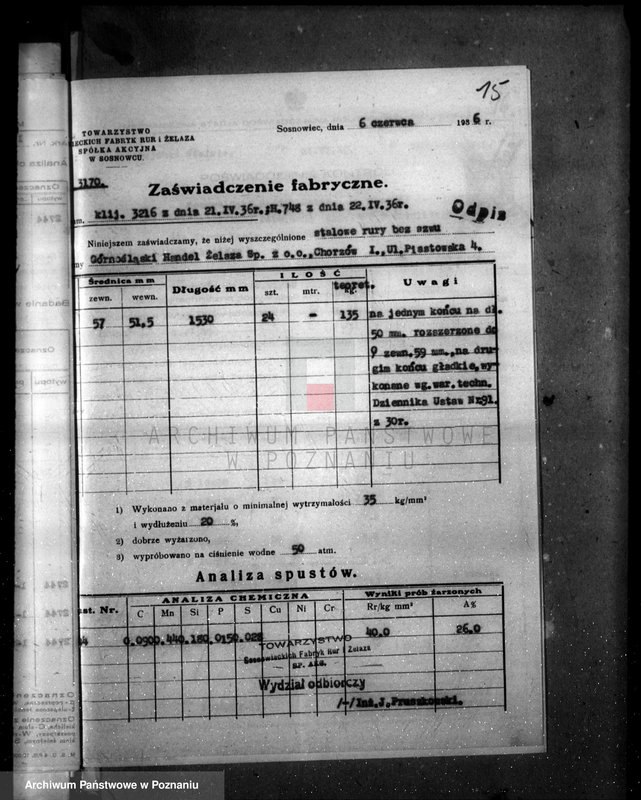 15
Sosnowiec, dnia 6 czerwca 1936 r.
TOWARZYSTWO
IECKICH FABRYK RUR i ŻELAZA
SPÓŁKA AKCYJNA
W SOSNOWCU.
3170.
Zaświadczenie fabryczne.
Odpis
klij. 3216 z dnia 21.IV.36r.;H.748 z dnia 22.IV.36r.
Niniejszem zaświadczamy, że niżej wyszczególnione stalowe rury bez szwu
Górnośląski Handel Żelaza Sp. z o.o., Chorzów I., Ul. Piastowska 4.
Średnica mm Długość mm ILOŚĆ Uwagi
zewn. wewn. szt. mtr. kg. teoret.
57 51,5 1530 24 - 135 na jednym końcu na dł.
50 mm. rozszerzone do
zewn. 59 mm., na dru-
gim końcu gładkie, wy-
konane wg. war. techn.
Dziennika Ustaw Nr.91.
z 30r.
ARCHIWUM PAŃSTWOWE
W POZNANIU
1) Wykonano z materjału o minimalnej wytrzymałości 35 kg/mm²
i wydłużeniu 20 %,
2) dobrze wyżarzono,
3) wypróbowano na ciśnienie wodne 50 atm.
Analiza spustów.
st. Nr. ANALIZA CHEMICZNA Wyniki prób żarzonych
C Mn Si P S Cu Ni Cr Rr/kg mm² A%
4 0.090 0.440 .180 .015 0.028 40.0 26.0
TOWARZYSTWO
Sosnowieckich Fabryk Rur i Żelaza
SP. AKC.
Wydział odbiorczy
/-/ Inż. J. Pruszkowski.
Archiwum Państwowe w Poznaniu